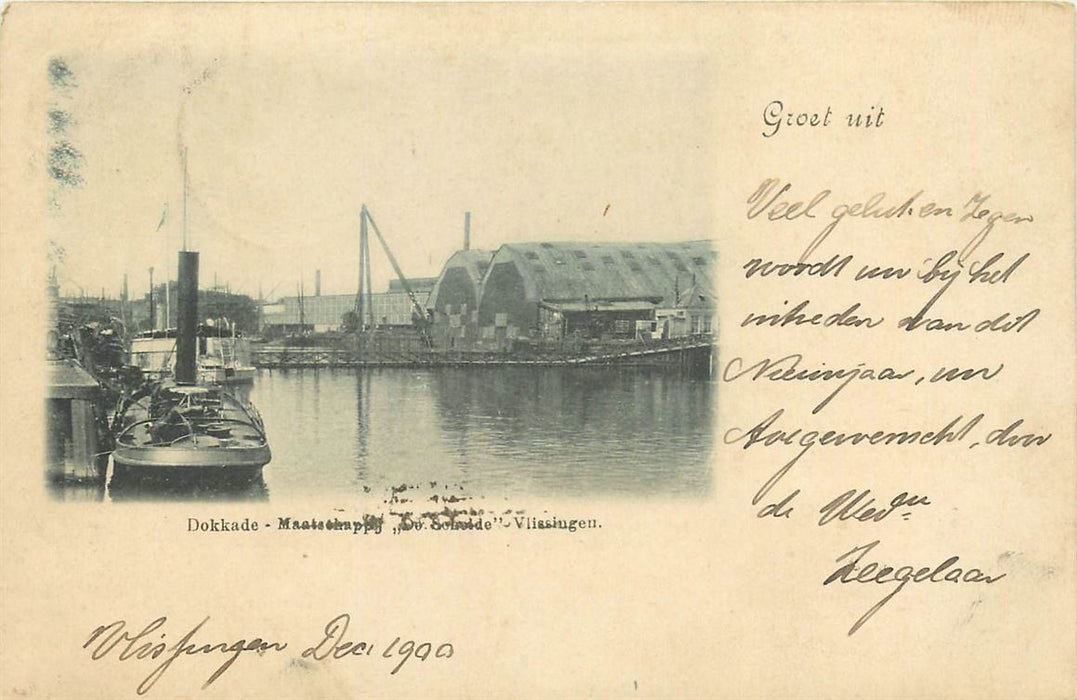 Groet uit
Veel geluk en Zegen
wordt uw bij het
intreden van dit
Nieuwjaar, uw
toegewenscht, door
de Wed
Zeegelaar
Dokkade - Maatschappij „De Schelde” - Vlissingen.
Vlissingen Dec 1900